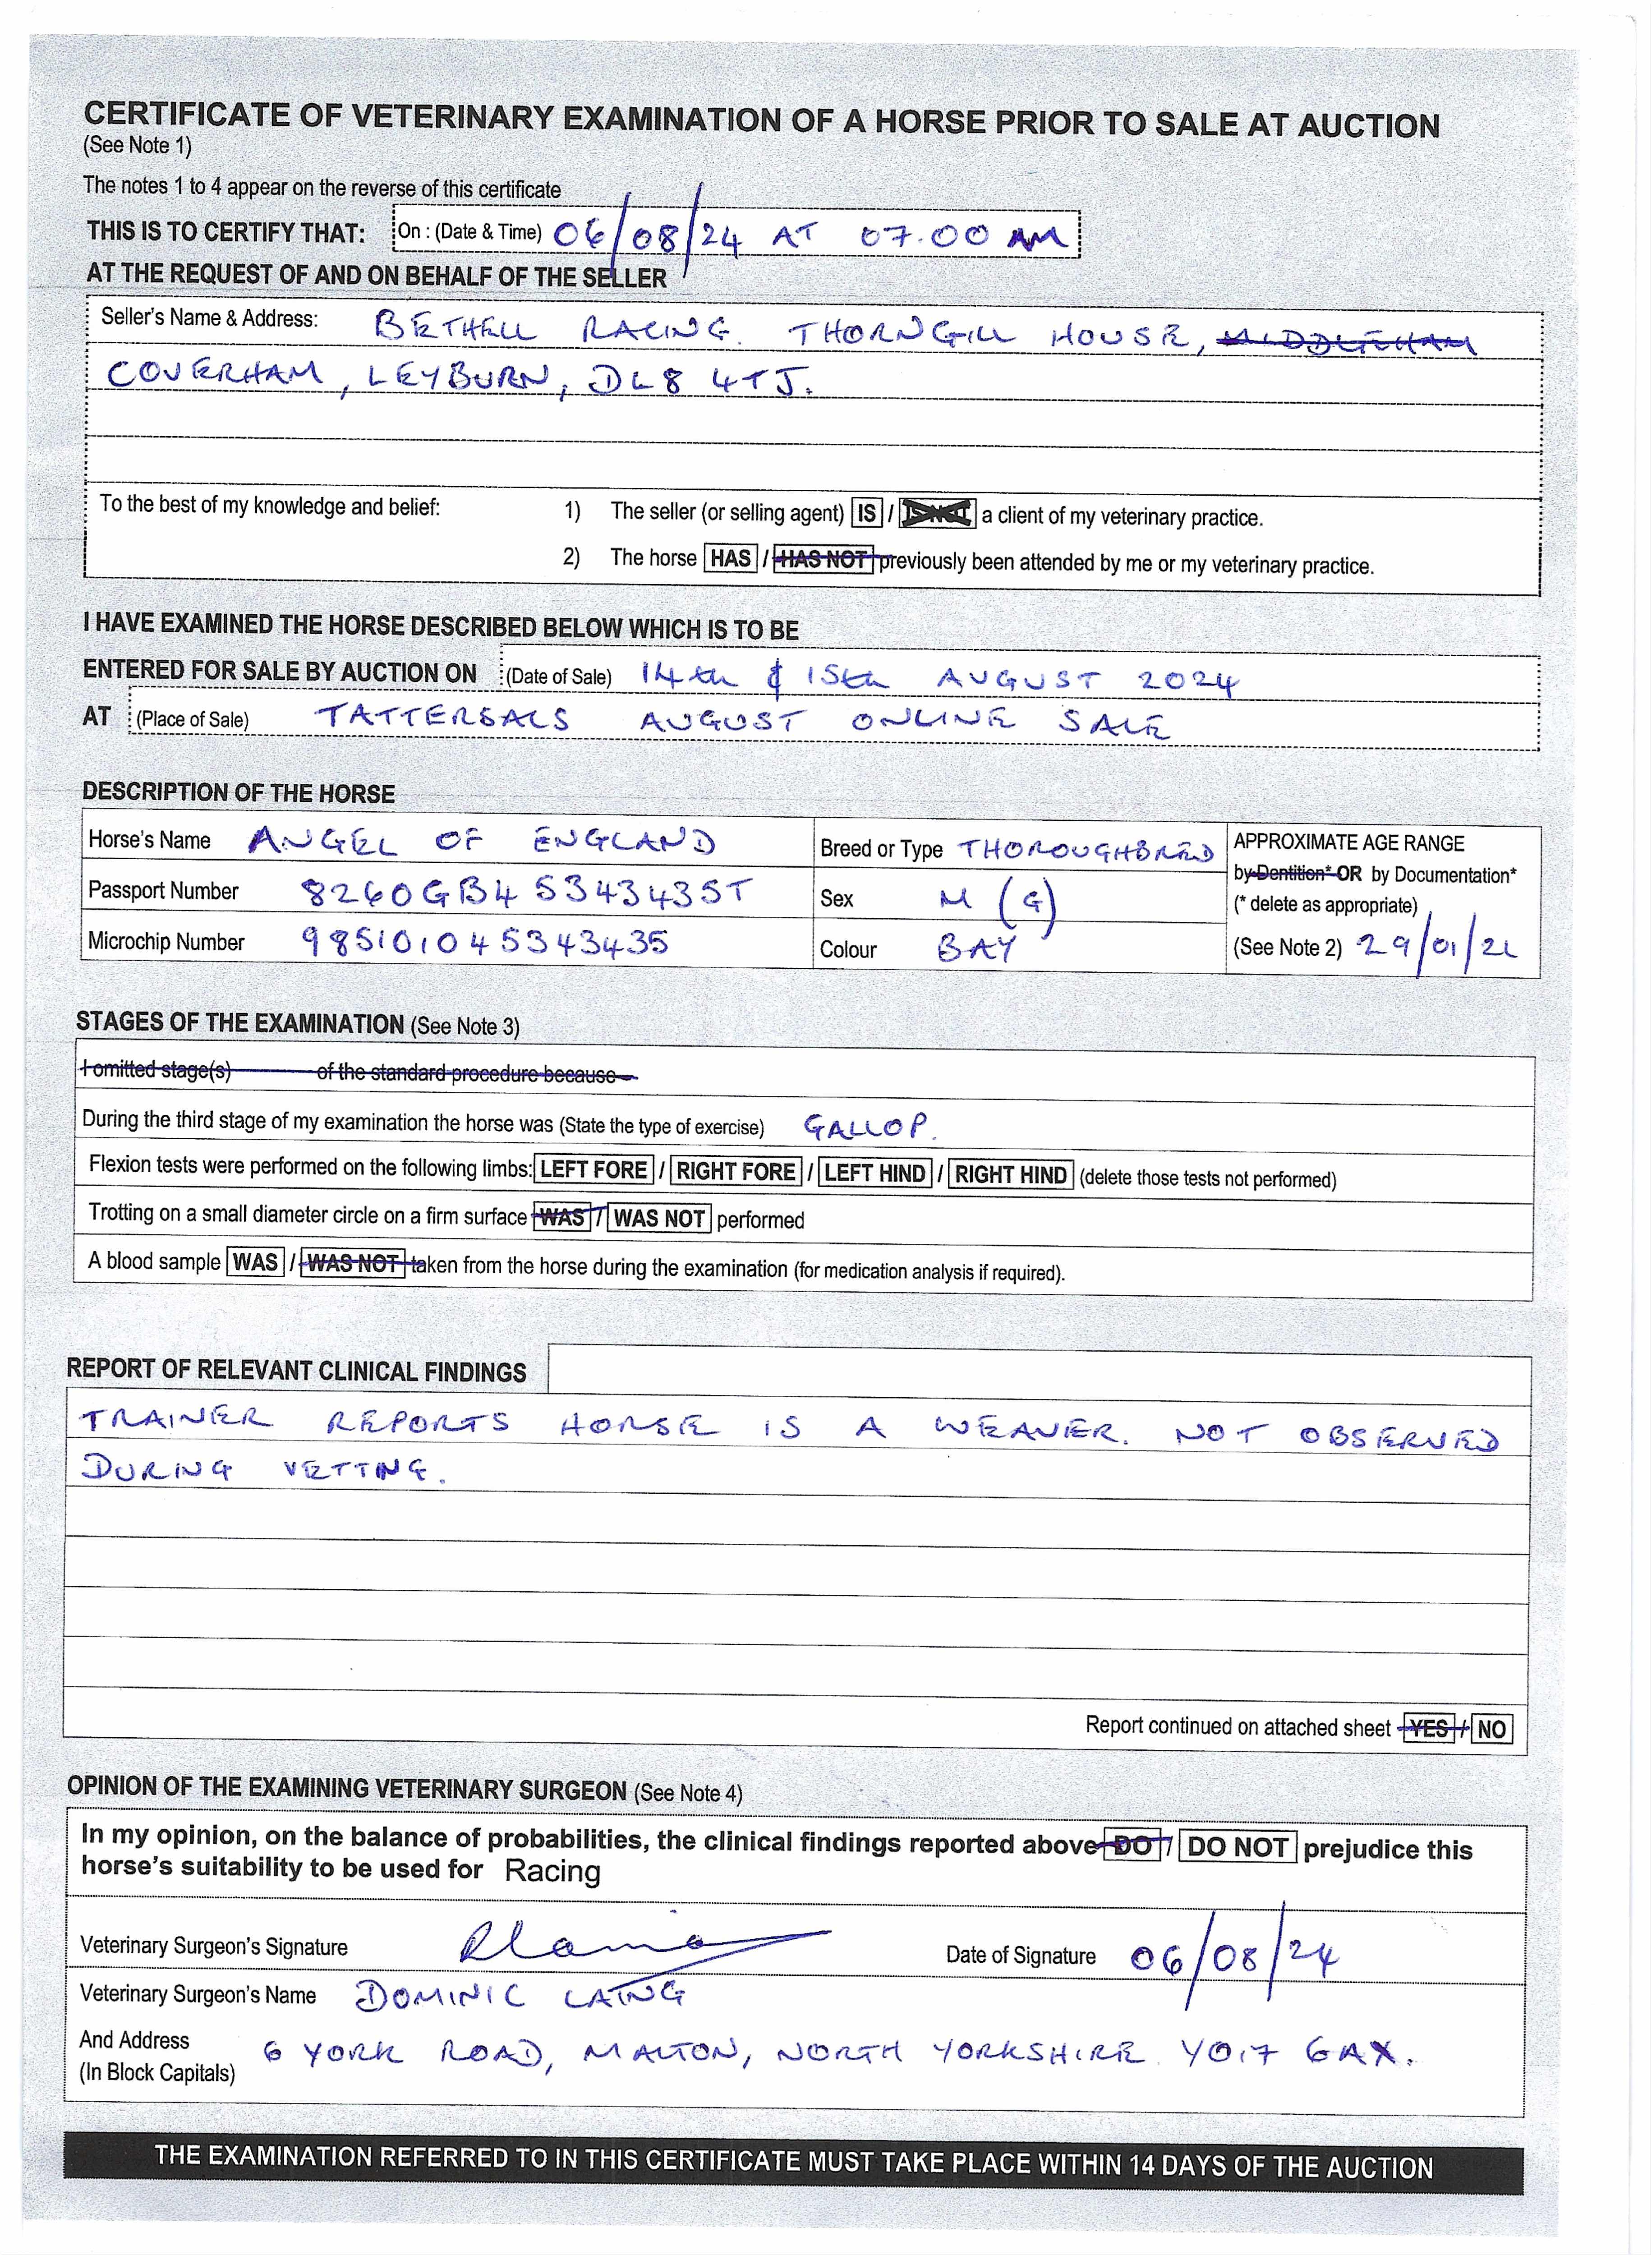 CERTIFICATE OF VETERINARY EXAMINATION OF A HORSE PRIOR TO SALE AT AUCTION
(See Note 1)
The notes 1 to 4 appear on the reverse of this certificate
THIS IS TO CERTIFY THAT: On : (Date & Time) 06/08/24 AT 07.00 AM
AT THE REQUEST OF AND ON BEHALF OF THE SELLER
Seller's Name & Address: BETHELL RACING. THORNGILL HOUSE, MIDDLEHAM
COVERHAM, LEYBURN, DL8 4TJ.
To the best of my knowledge and belief: 1) The seller (or selling agent) IS / IS NOT a client of my veterinary practice.
2) The horse HAS / HAS NOT previously been attended by me or my veterinary practice.
I HAVE EXAMINED THE HORSE DESCRIBED BELOW WHICH IS TO BE
ENTERED FOR SALE BY AUCTION ON (Date of Sale) 14th & 15th AUGUST 2024
AT (Place of Sale) TATTERSALS AUGUST ONLINE SALE
DESCRIPTION OF THE HORSE
Horse's Name ANGEL OF ENGLAND Breed or Type THOROUGHBRED APPROXIMATE AGE RANGE
by Dentition* OR by Documentation*
Passport Number 8260GB45343435T Sex M (G) (* delete as appropriate)
Microchip Number 985101045343435 Colour BAY (See Note 2) 29/01/
STAGES OF THE EXAMINATION (See Note 3)
I omitted stage(s) of the standard procedure because
During the third stage of my examination the horse was (State the type of exercise) GALLOP.
Flexion tests were performed on the following limbs: LEFT FORE / RIGHT FORE / LEFT HIND / RIGHT HIND (delete those tests not performed)
Trotting on a small diameter circle on a firm surface WAS / WAS NOT performed
A blood sample WAS / WAS NOT taken from the horse during the examination (for medication analysis if required).
REPORT OF RELEVANT CLINICAL FINDINGS
TRAINER REPORTS HORSE IS A WEAVER. NOT OBSERVED
DURING VETTING.
Report continued on attached sheet YES / NO
OPINION OF THE EXAMINING VETERINARY SURGEON (See Note 4)
In my opinion, on the balance of probabilities, the clinical findings reported above DO / DO NOT prejudice this
horse's suitability to be used for Racing
Veterinary Surgeon's Signature Date of Signature 06/08/24
Veterinary Surgeon's Name DOMINIC LAING
And Address
(In Block Capitals) 6 YORK ROAD, MALTON, NORTH YORKSHIRE. YO17 6AX.
THE EXAMINATION REFERRED TO IN THIS CERTIFICATE MUST TAKE PLACE WITHIN 14 DAYS OF THE AUCTION